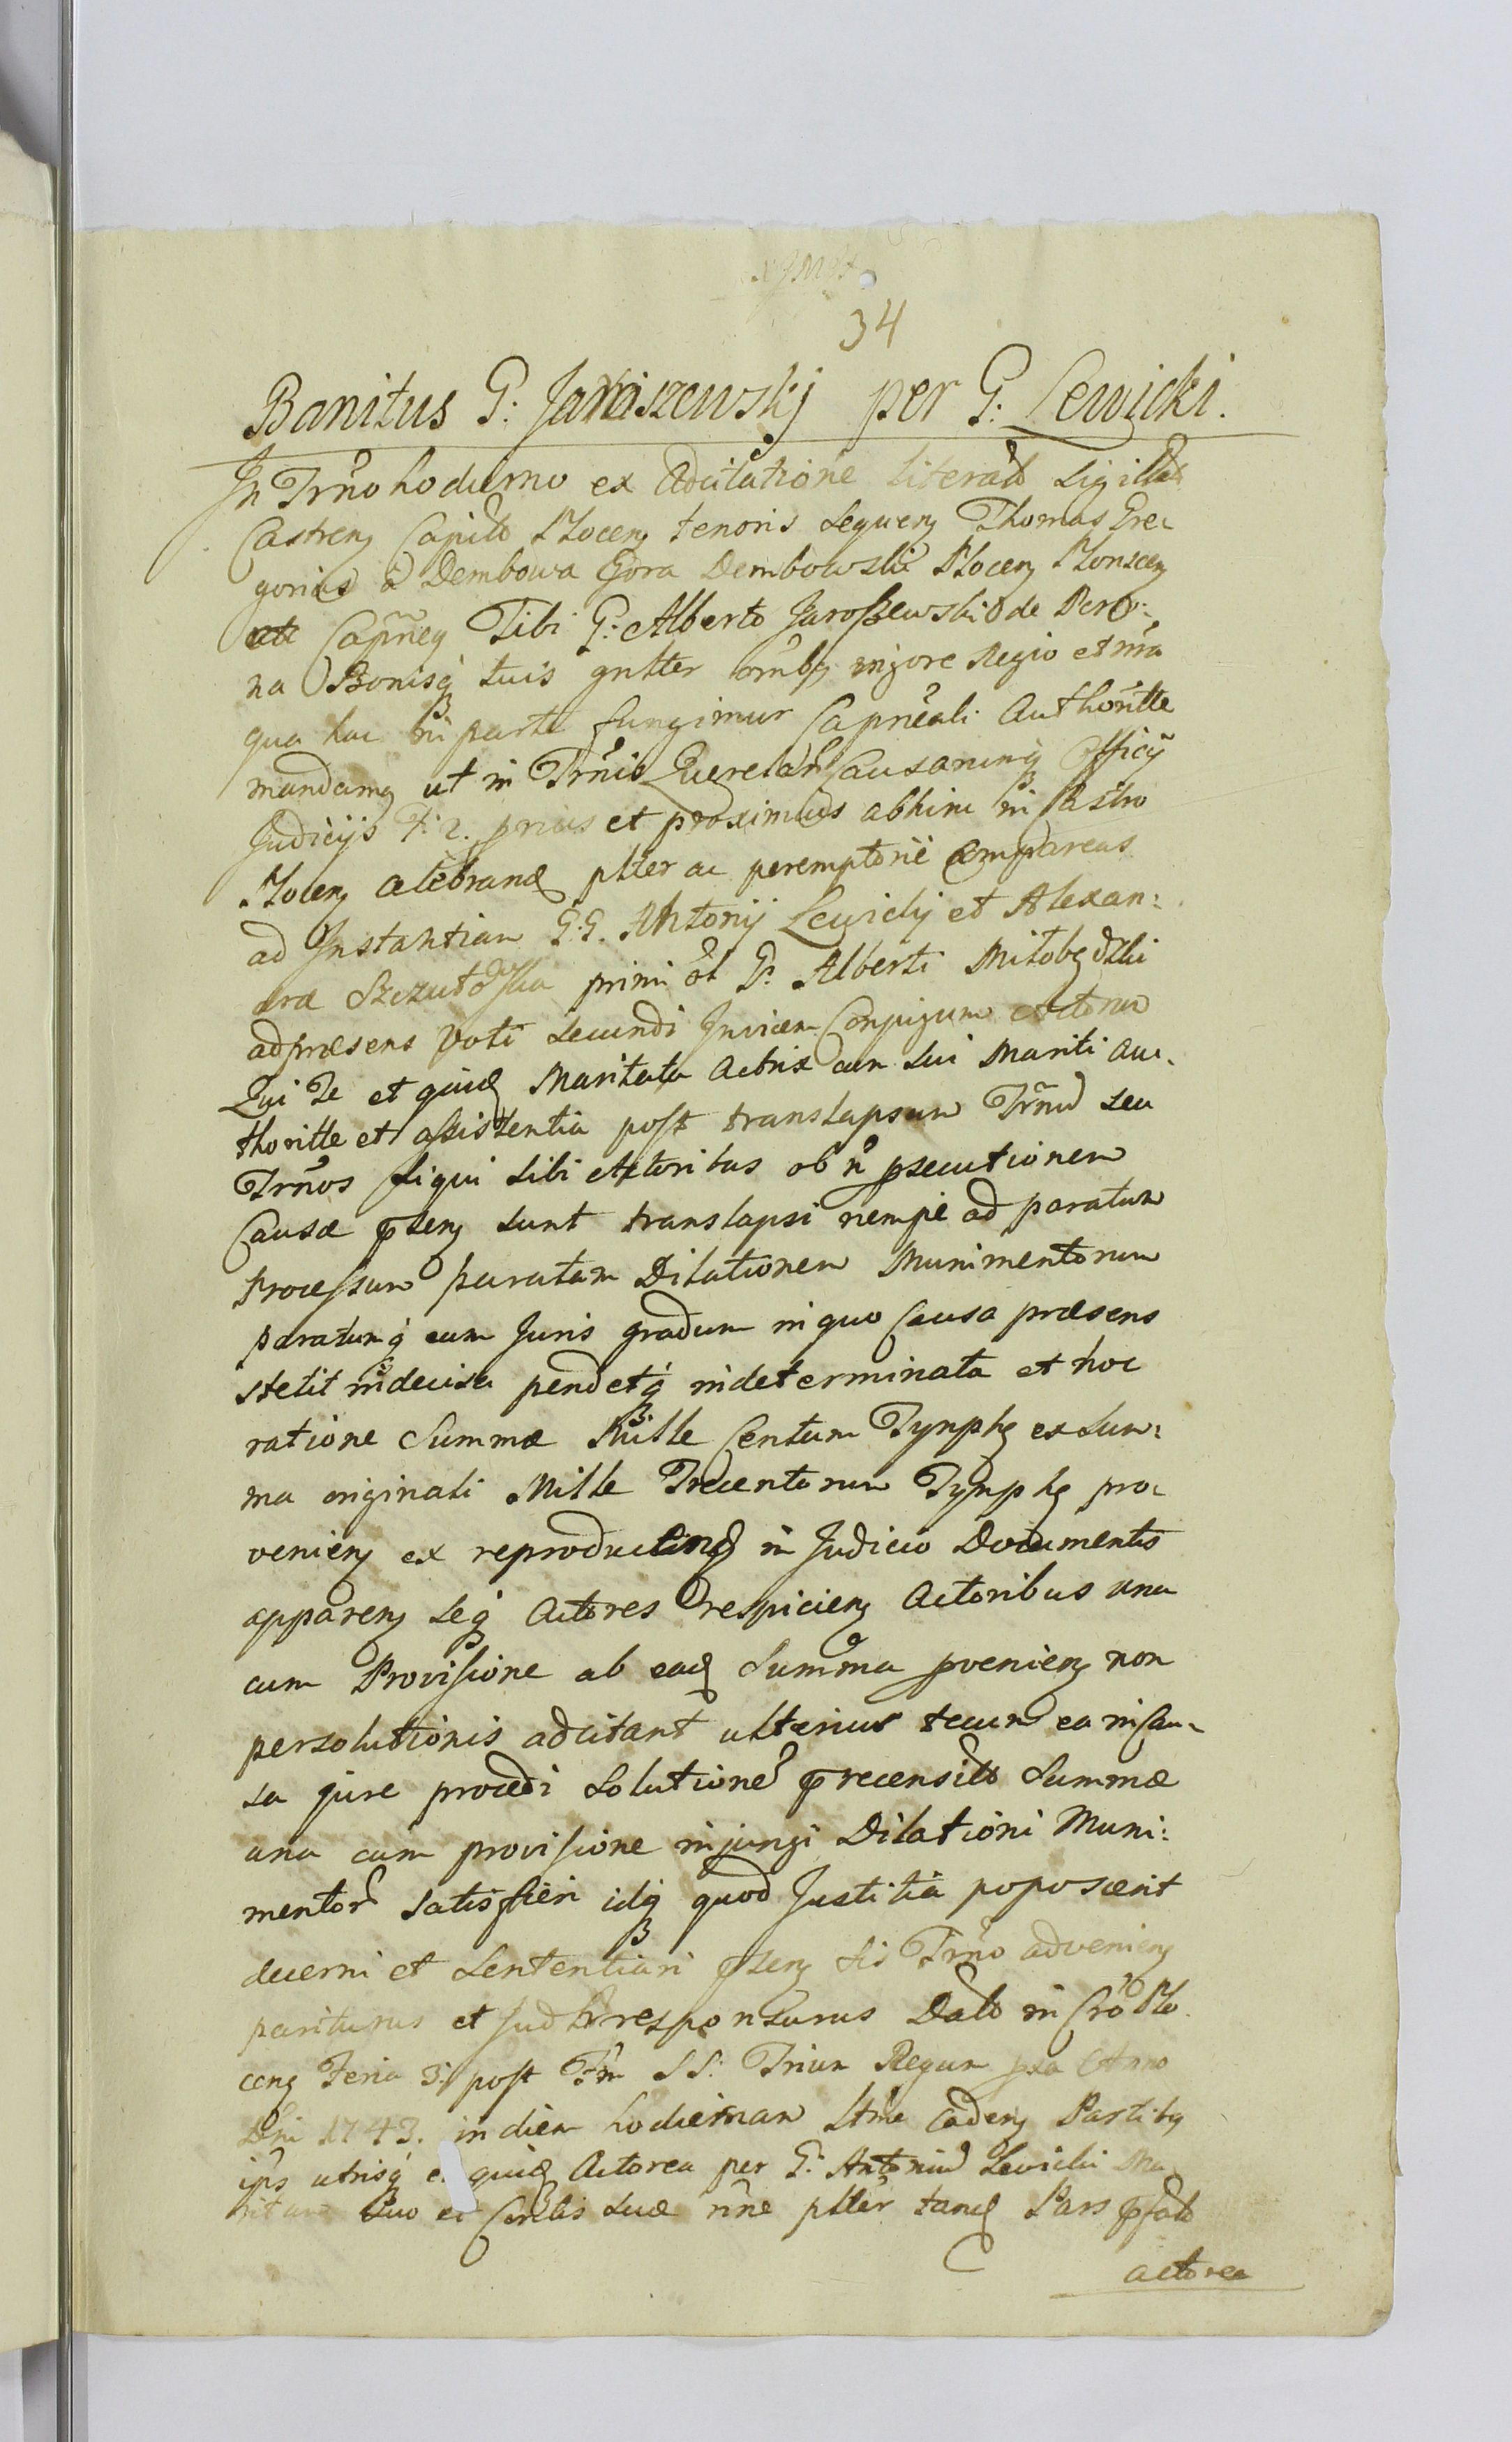 34
Banitus G: Jaroszewskj per G: Lewicki.
In Trño hodierno ex Adcitatione literar̃ Sigillat
Castren Capitlis Plocen tenoris sequen Thomas Gre-
gorius a Dembowa Gora Dembowski Plocen Plonscen
etc Capñeus Tibi G: Alberto Jaroszewski de Pero:
na Bonisq tuis gnlter omĩbq vigore Regio et mra
qua hac in parte fungimur Capneali Authoritte
mandamq ut in Trñis Querelar̃ Causarumq Officij
Judicijs F: 2. prius et proximius abhinc in Castro
Plocen celebrand plter ac peremptorie compareas
ad Instantiam G:G. Antonij Lewicky et Alexan:
dræ Szczutowska primi ol G: Alberti Mitobędzki
ad præsens voti secundi Invicem Conjugum Actorum
Qui Te et quid Maritata Actrix cum sui Mariti Au-
thoritte et assistentia post translapsum Trñum seu
Trños siqui sibi Actoribus ob ñ psecutionem
Causæ psen sunt translapsi nempe ad paratum
Processum paratam Dilationem Munimentorum
paratumq eum Juris gradum in quo Causa præsens
stetit indecisa pendetq indeterminata et hoc
ratione Summæ Mille Centum Tynph ex Sum:
ma originali Mille Trecentorum Tynph pro-
venien ex reproducend in Judicio Documentis
apparen seq Actores respicien Actoribus una
cum Provisione ab ead Summa pvenien non
persolutionis adcitant ulterius tecum ea in Cau-
sa jure procedi Solutione precensitæ Summæ
una cum provisione injungi Dilationi Muni:
mentor̃ satisfieri idq quod Justitia poposcerit
decerni et Sententiari psen sis Trño advenien
pariturus et Judlr responsurus Datt in Cro Plo
cen Feria 3. post Fm SS: Trium Regum pxa Anno
Dni 1743. in diem hodiernam ltme caden Partibq
ipis utrisq quid Actorea per G: Antonium Lewicki Ma
ritum suo et Conthlis suæ nne plter tand Pars pfata
actorea